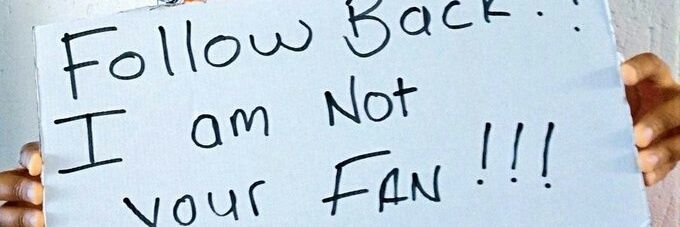 Follow Back!!
I am Not
your FAN!!!